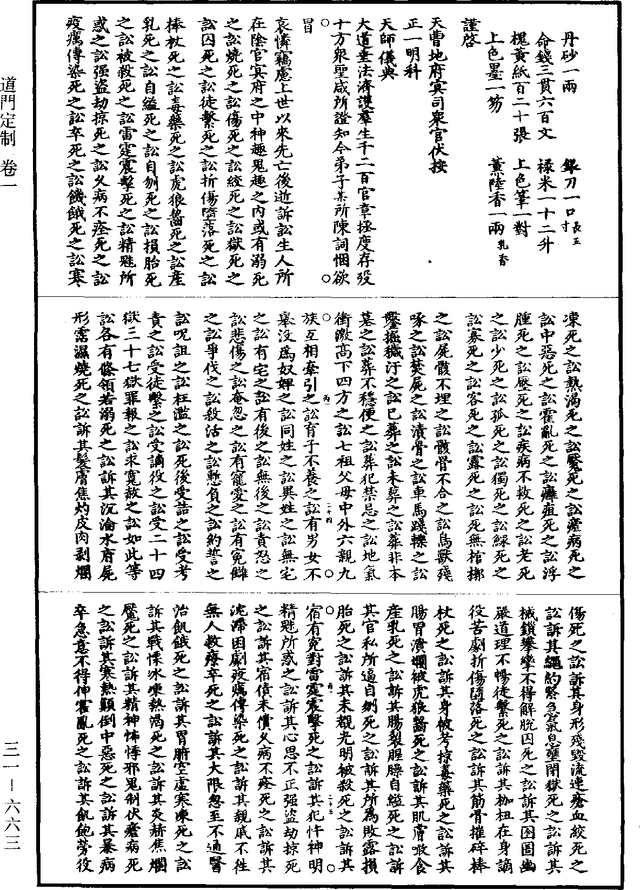 道門定制 卷一
三一－六六三
丹砂一兩 銀刀一口長五寸
命錢三貫六百文 祿米一十二升
槐黃紙百二十張 上色筆一對
上色墨一笏 薰陸香一兩乳香
謹啓
天曹地府冥司衆官伏按
正一明科
天師儀典
大道垂法濟護羣生千二百官章拯度存歿
十方衆聖咸所證知今弟子某所陳詞悃欲
冒
哀憐竊慮上世以來先亡後逝訴訟生人所
在陰官冥府之中神趣鬼趣之內或有溺死
之訟燒死之訟傷死之訟絞死之訟獄死之
訟囚死之訟徒繫死之訟折傷墮落死之訟
棒杖死之訟毒藥死之訟虎狼齧死之訟產
乳死之訟自縊死之訟自刎死之訟損胎死
之訟被殺死之訟雷霆震擊死之訟精魅所
惑之訟强盜劫掠死之訟久病不痊死之訟
疫癘傳染死之訟卒死之訟饑餓死之訟寒
凍死之訟熱渴死之訟魘死之訟瘡病死之
訟中惡死之訟霍亂死之訟癰疽死之訟浮
腫死之訟壓死之訟疾病不救死之訟老死
之訟少死之訟孤死之訟獨死之訟鰥死之
訟寡死之訟客死之訟露死之訟死無棺槨
之訟屍骸不埋之訟骸骨不合之訟鳥獸殘
啄之訟焚屍之訟漬骨之訟車馬踐轢之訟
鑿掘穢汙之訟已葬之訟未葬之訟葬非本
墓之訟葬不穩便之訟葬犯禁忌之訟地氣
衝激高下四方之訟七祖父母中外六親九
族互相牽引之訟育子不養之訟有男女不
舉沒爲奴婢之訟同姓之訟異姓之訟無宅
之訟有宅之訟有後之訟無後之訟責怨之
訟悲傷之訟奄忽之訟有寵愛之訟有冤讎
之訟爭伐之訟殺活之訟慙負之訟約誓之
訟呪詛之訟枉濫之訟死後受誥之訟受考
責之訟受徒繫之訟受謫役之訟受二十四
獄三十七獄罪報之訟求寬赦之訟如此等
訟各有條領若溺死之訟訴其沉淪水府屍
形霑濕燒死之訟訴其髮膚焦灼皮肉剝爛
傷死之訟訴其身形殘毀流連瘡血絞死之
訟訴其繩約緊急氣息壅閉獄死之訟訴其
械鎖攣攣不得解脫囚死之訟訴其囹圄幽
嚴道理不暢徒繫死之訟訴其枷杻在身謫
役苦劇折傷墮落死之訟訴其筋骨摧碎棒
杖死之訟訴其身被考掠毒藥死之訟訴其
腸胃潰爛被虎狼齧死之訟訴其肌膚噉食
產乳死之訟訴其腸裂胞臊自縊死之訟訴
其官私所逼自刎死之訟訴其所爲敗露損
胎死之訟訴其未覩光明被殺死之訟訴其
宿有冤對雷霆震擊死之訟訴其犯忤神明
精魅所惑之訟訴其心思不正强盜劫掠死
之訟訴其宿債未償久病不痊死之訟訴其
沈滯困劇疫癘傳染死之訟訴其親戚不往
無人救療卒死之訟訴其大限忽至不通醫
治飢餓死之訟訴其胃腑空虛寒凍死之訟
訴其戰慄冰凍熱渴死之訟訴其炎赫焦爛
魘死之訟訴其精神怖悸邪鬼制伏瘡病死
之訟訴其寒熱顛倒中惡死之訟訴其暴病
卒急意不得伸霍亂死之訟訴其飢飽勞役